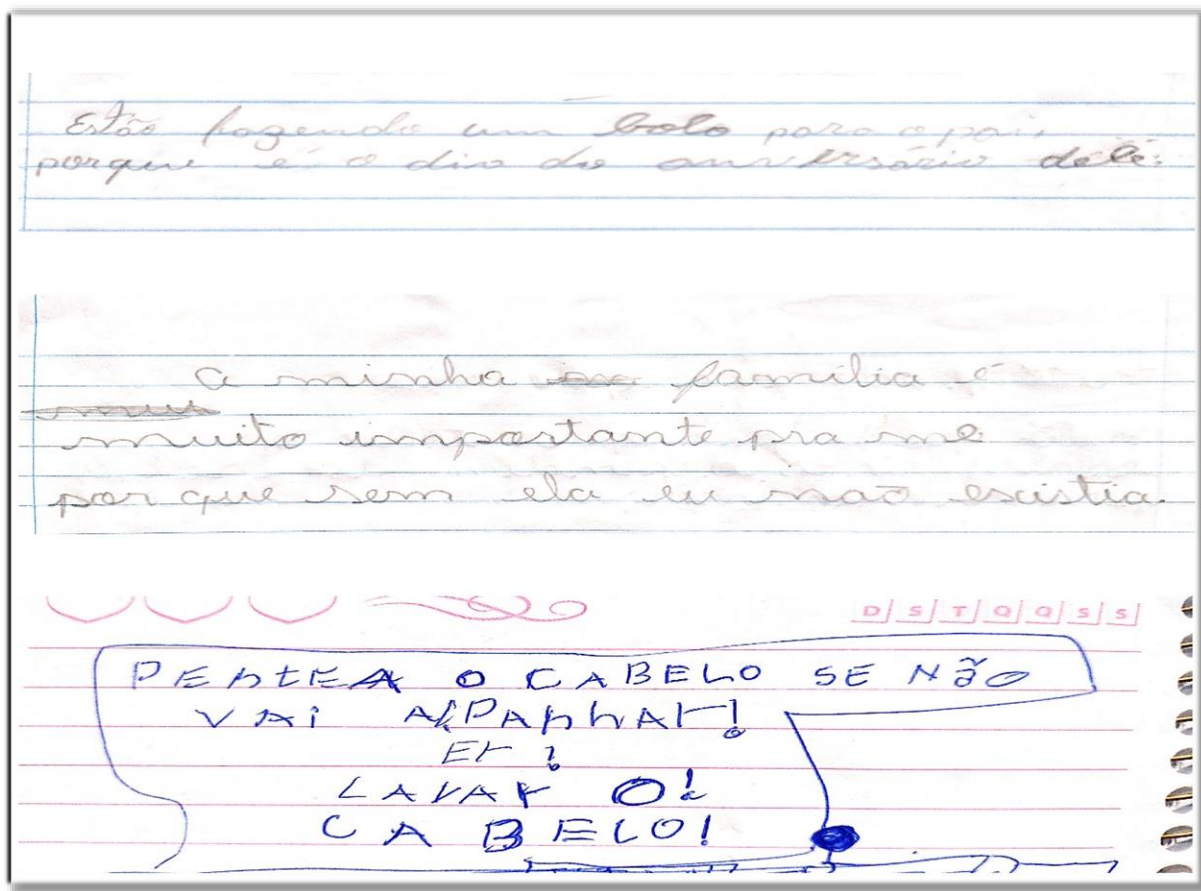 Estão fazendo um bolo para o pai,
porque é o dia do aniversário dele.
a minha família é
muito importante pra me
por que sem ela eu mao escistia.
D S T Q Q S S
PENTEA O CABELO SE NÃO
VAI APANHAR!
Er!
LAVAR O!
CABELO!